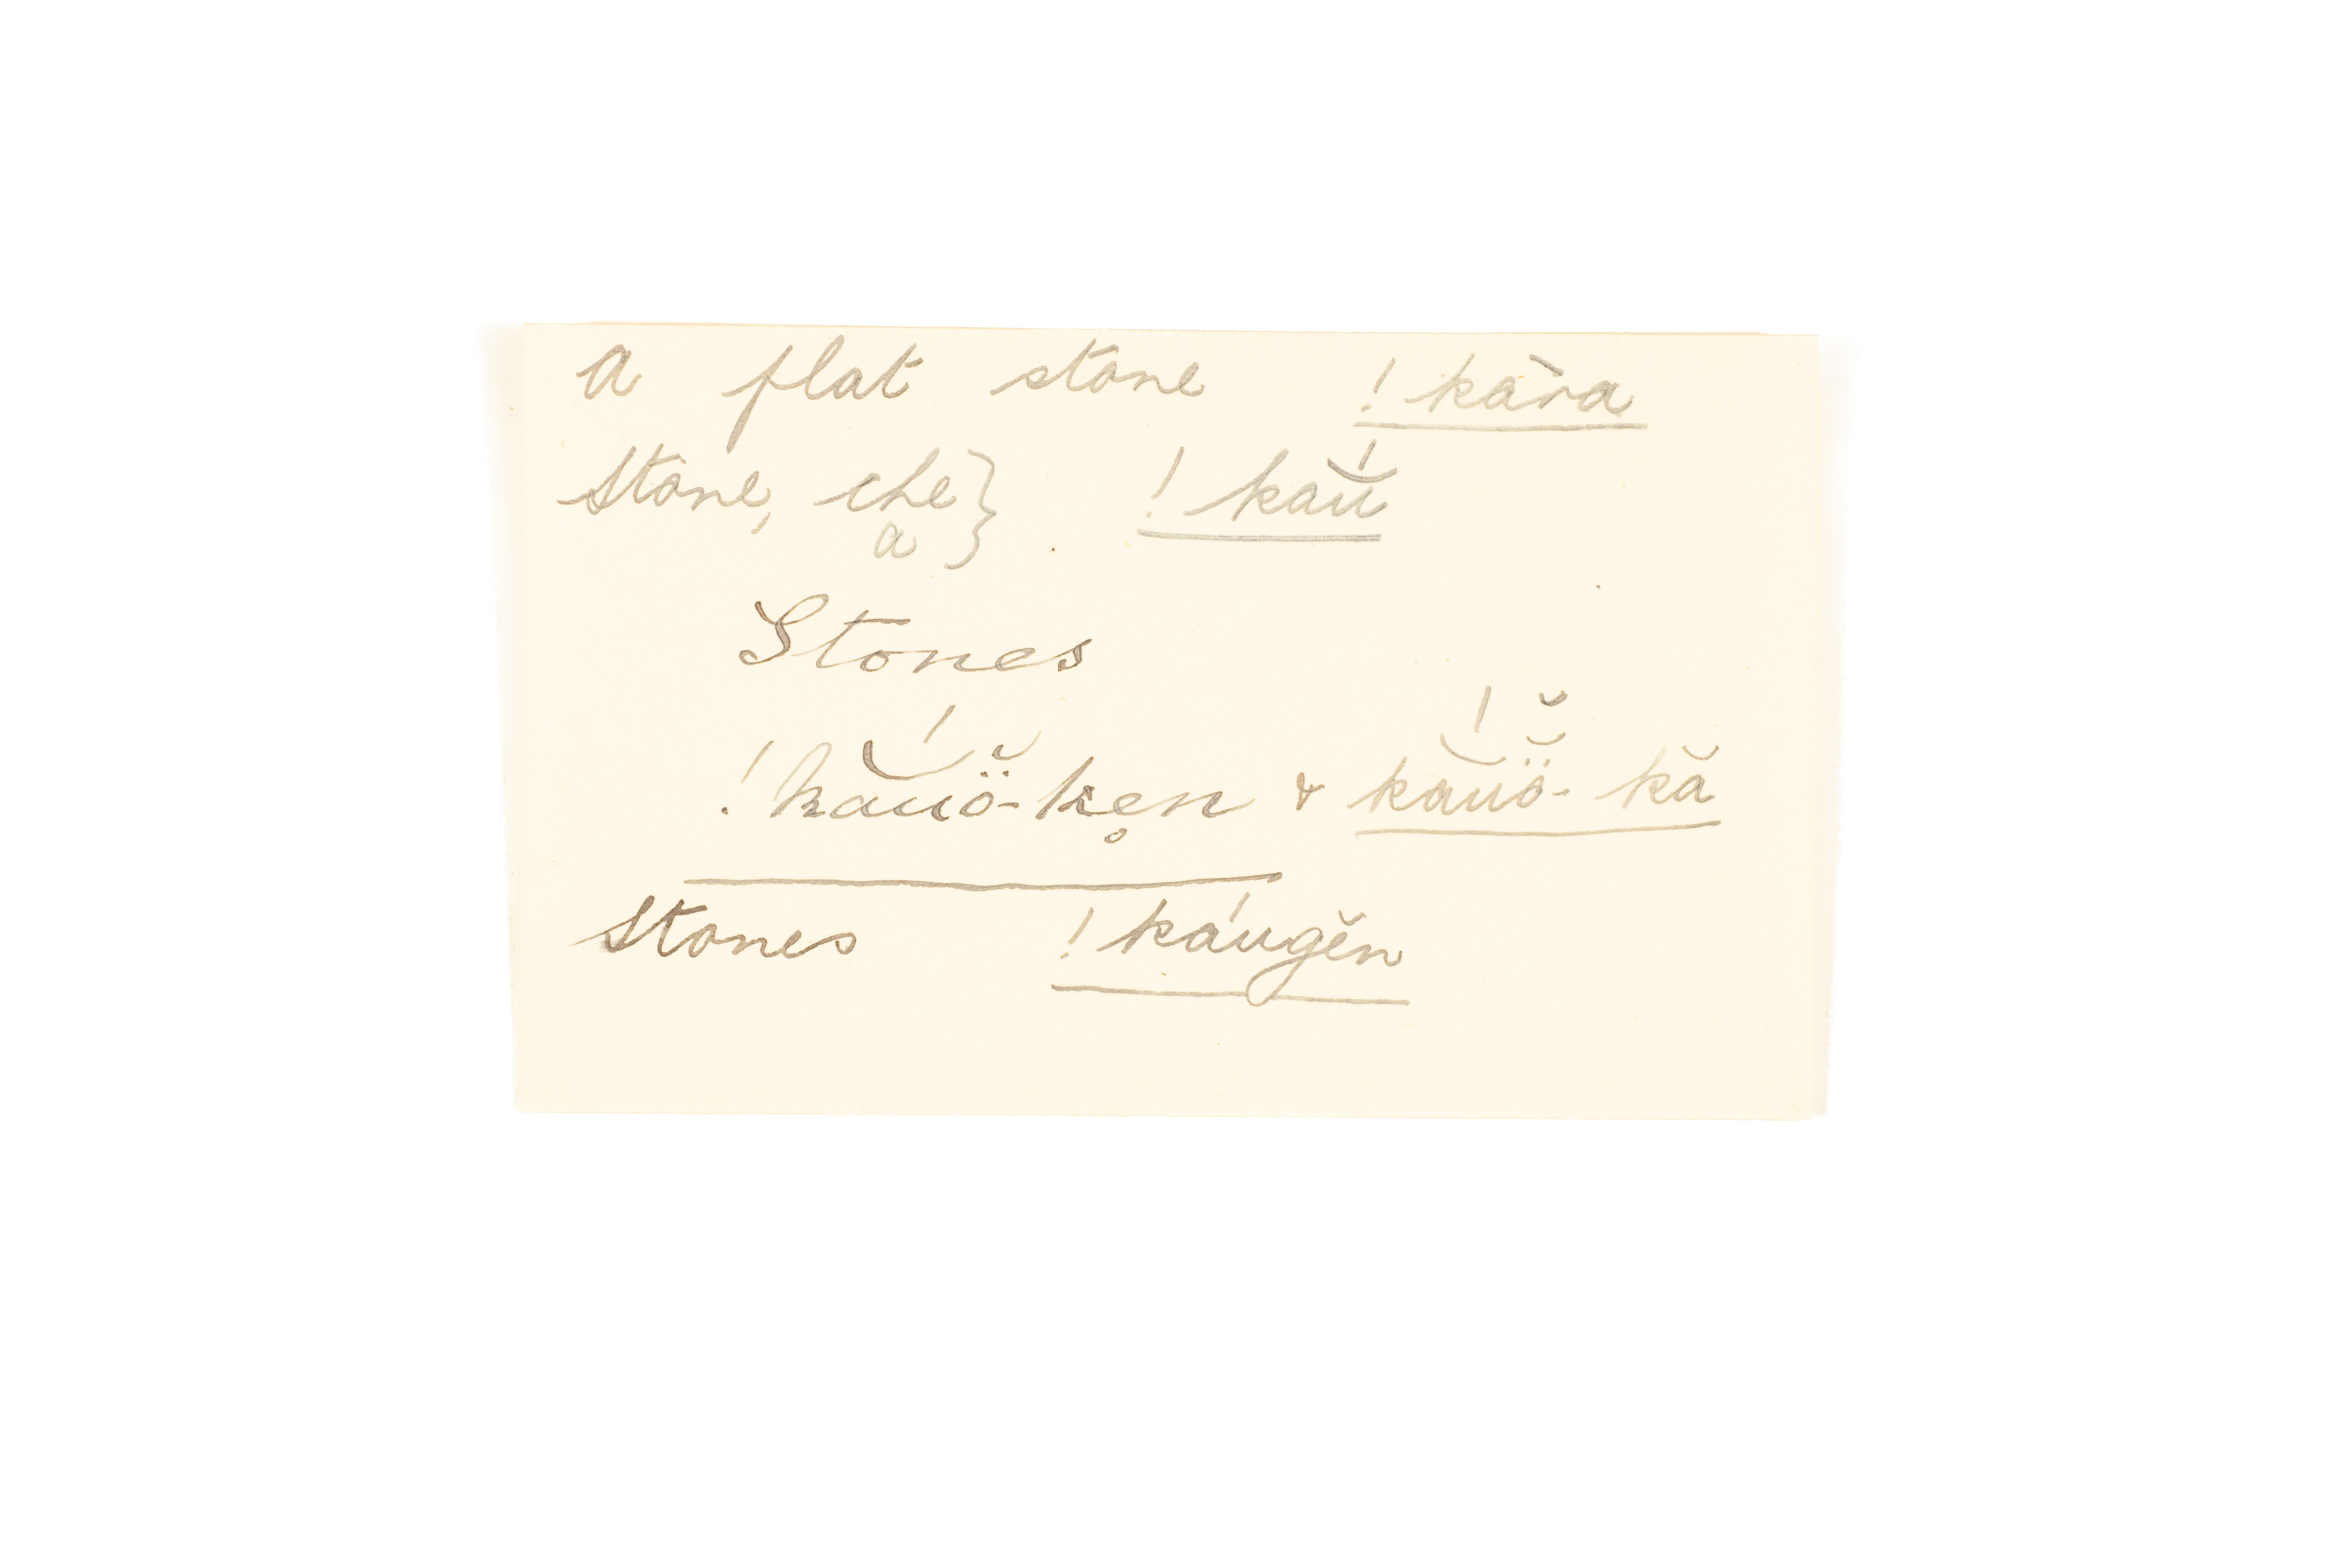 a flat stone !kàra
Stone, the } !kaú̯
a
Stones
!kaú̯ö̆-ke̥n & kaú̯ö̆-kă
Stones !káugĕn